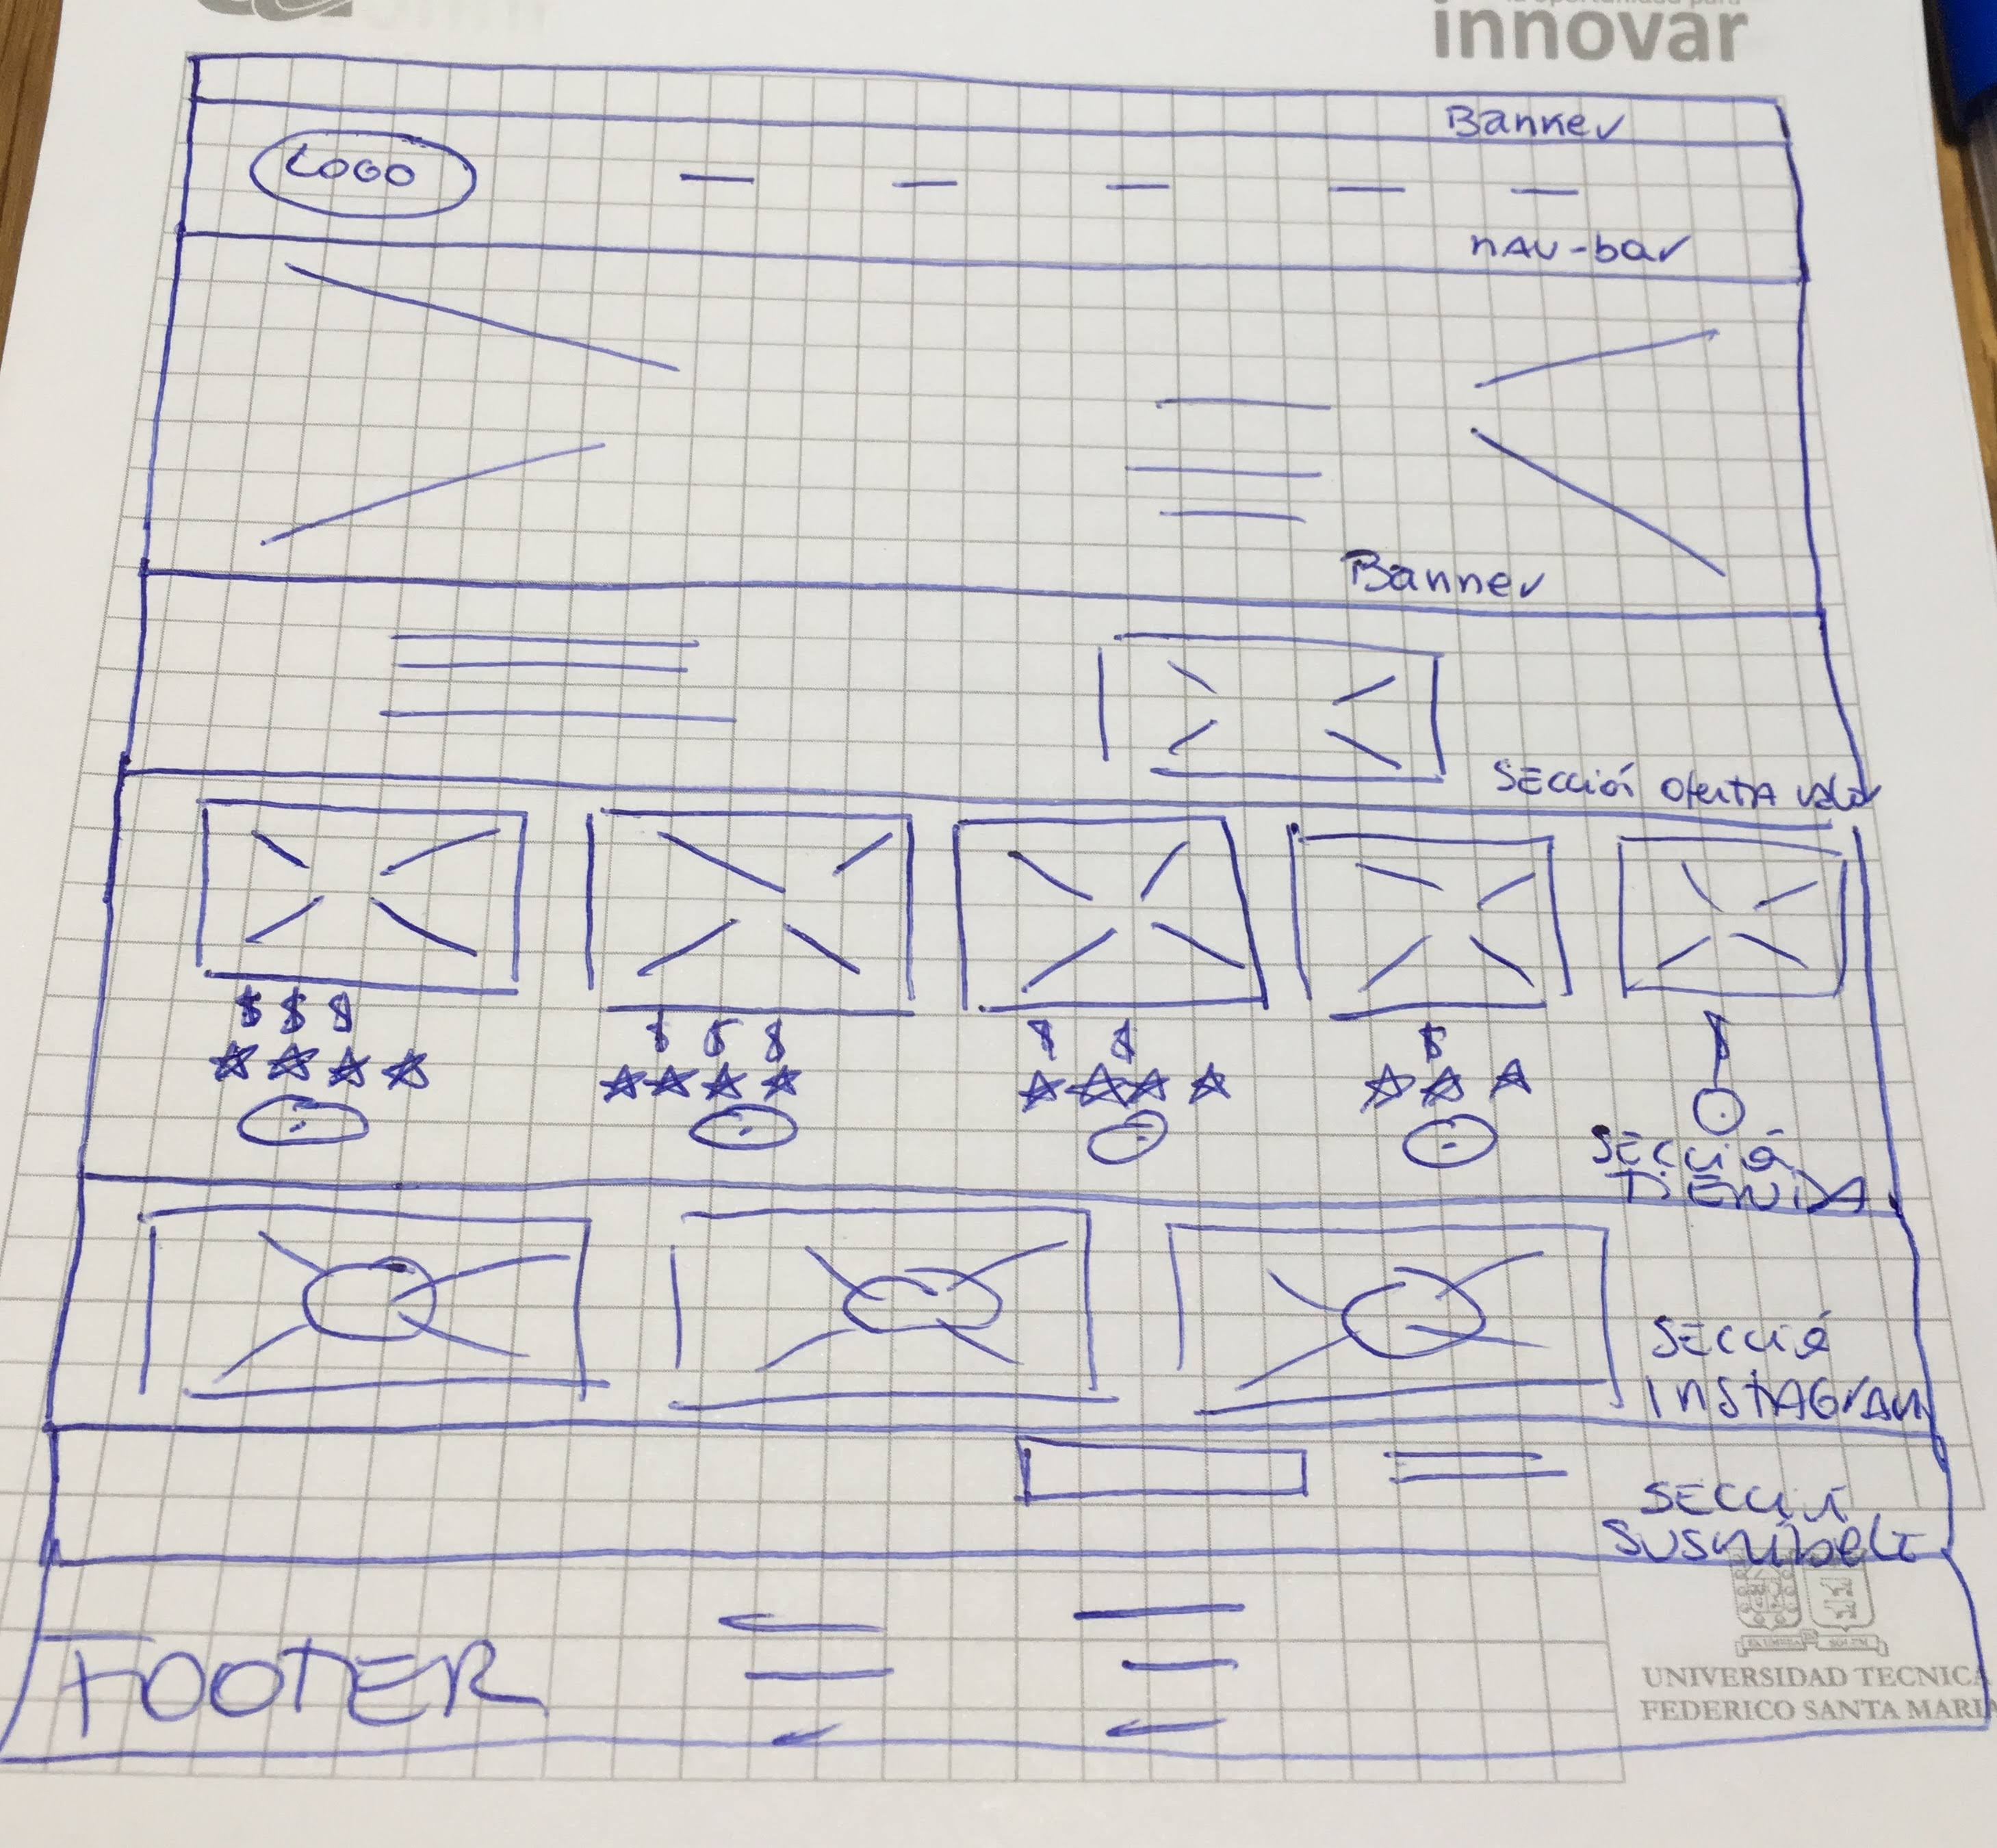 innovar
Banner
LOGO
nAV-bar
Banner
SECCIÓN OfertA valor
$ $ $
$ $ $
$ $
$
$
SECCIÓ
TIENDA
SECCIÓ
INSTAGRAM
FOOTER
UNIVERSIDAD TECNICA
FEDERICO SANTA MARIA